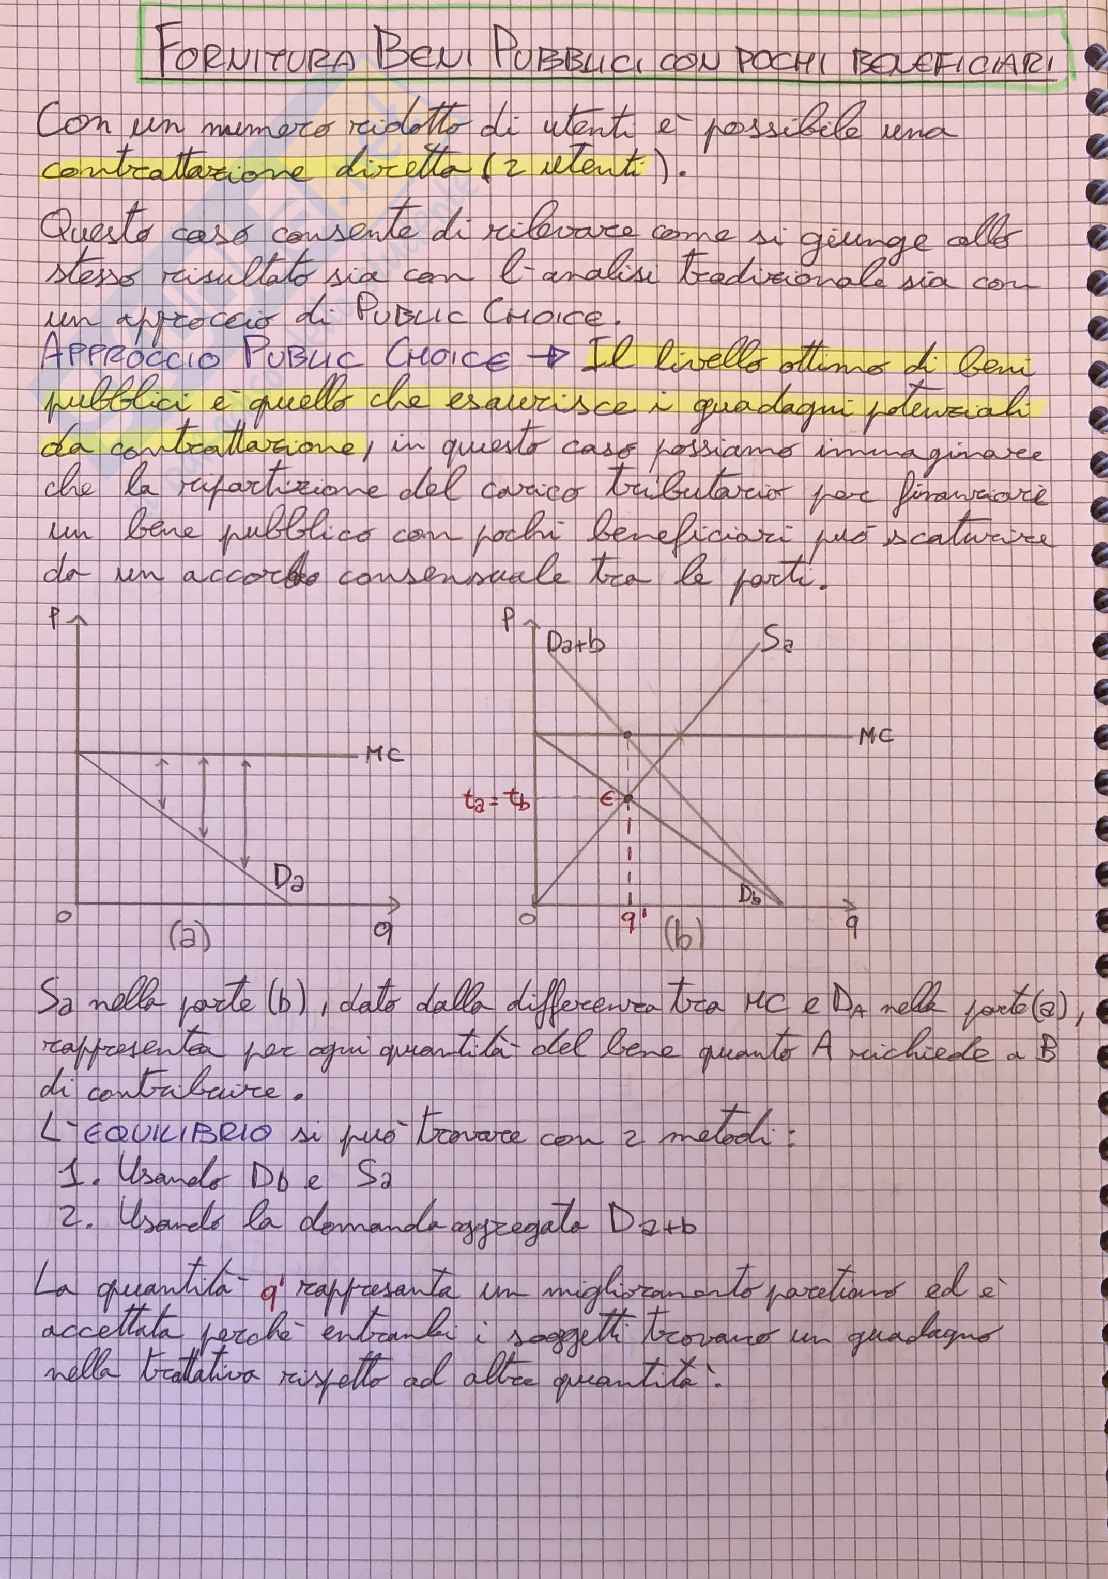 FORNITURA BENI PUBBLICI CON POCHI BENEFICIARI
Con un numero ridotto di utenti è possibile una
contrattazione diretta (2 utenti).
Questo caso consente di rilevare come si giunge allo
stesso risultato sia con l'analisi tradizionale sia con
un approccio di PUBLIC CHOICE.
APPROCCIO PUBLIC CHOICE → Il livello ottimo di beni
pubblici è quello che esaurisce i guadagni potenziali
da contrattazione, in questo caso possiamo immaginare
che la ripartizione del carico tributario per finanziare
un bene pubblico con pochi beneficiari può scaturire
da un accordo consensuale tra le parti.
P
MC
Da
0
q
(a)
P
Da+b
Sa
MC
ta=tb
E
Db
0
q'
(b)
q
Sa nella parte (b), dato dalla differenza tra MC e DA nella parte (a),
rappresenta per ogni quantità del bene quanto A richiede a B
di contribuire.
L'EQUILIBRIO si può trovare con 2 metodi:
1. Usando Db e Sa
2. Usando la domanda aggregata Da+b
La quantità q' rappresanta un miglioramento paretiano ed è
accettata perchè entrambi i soggetti trovano un guadagno
nella trattativa rispetto ad altre quantità.